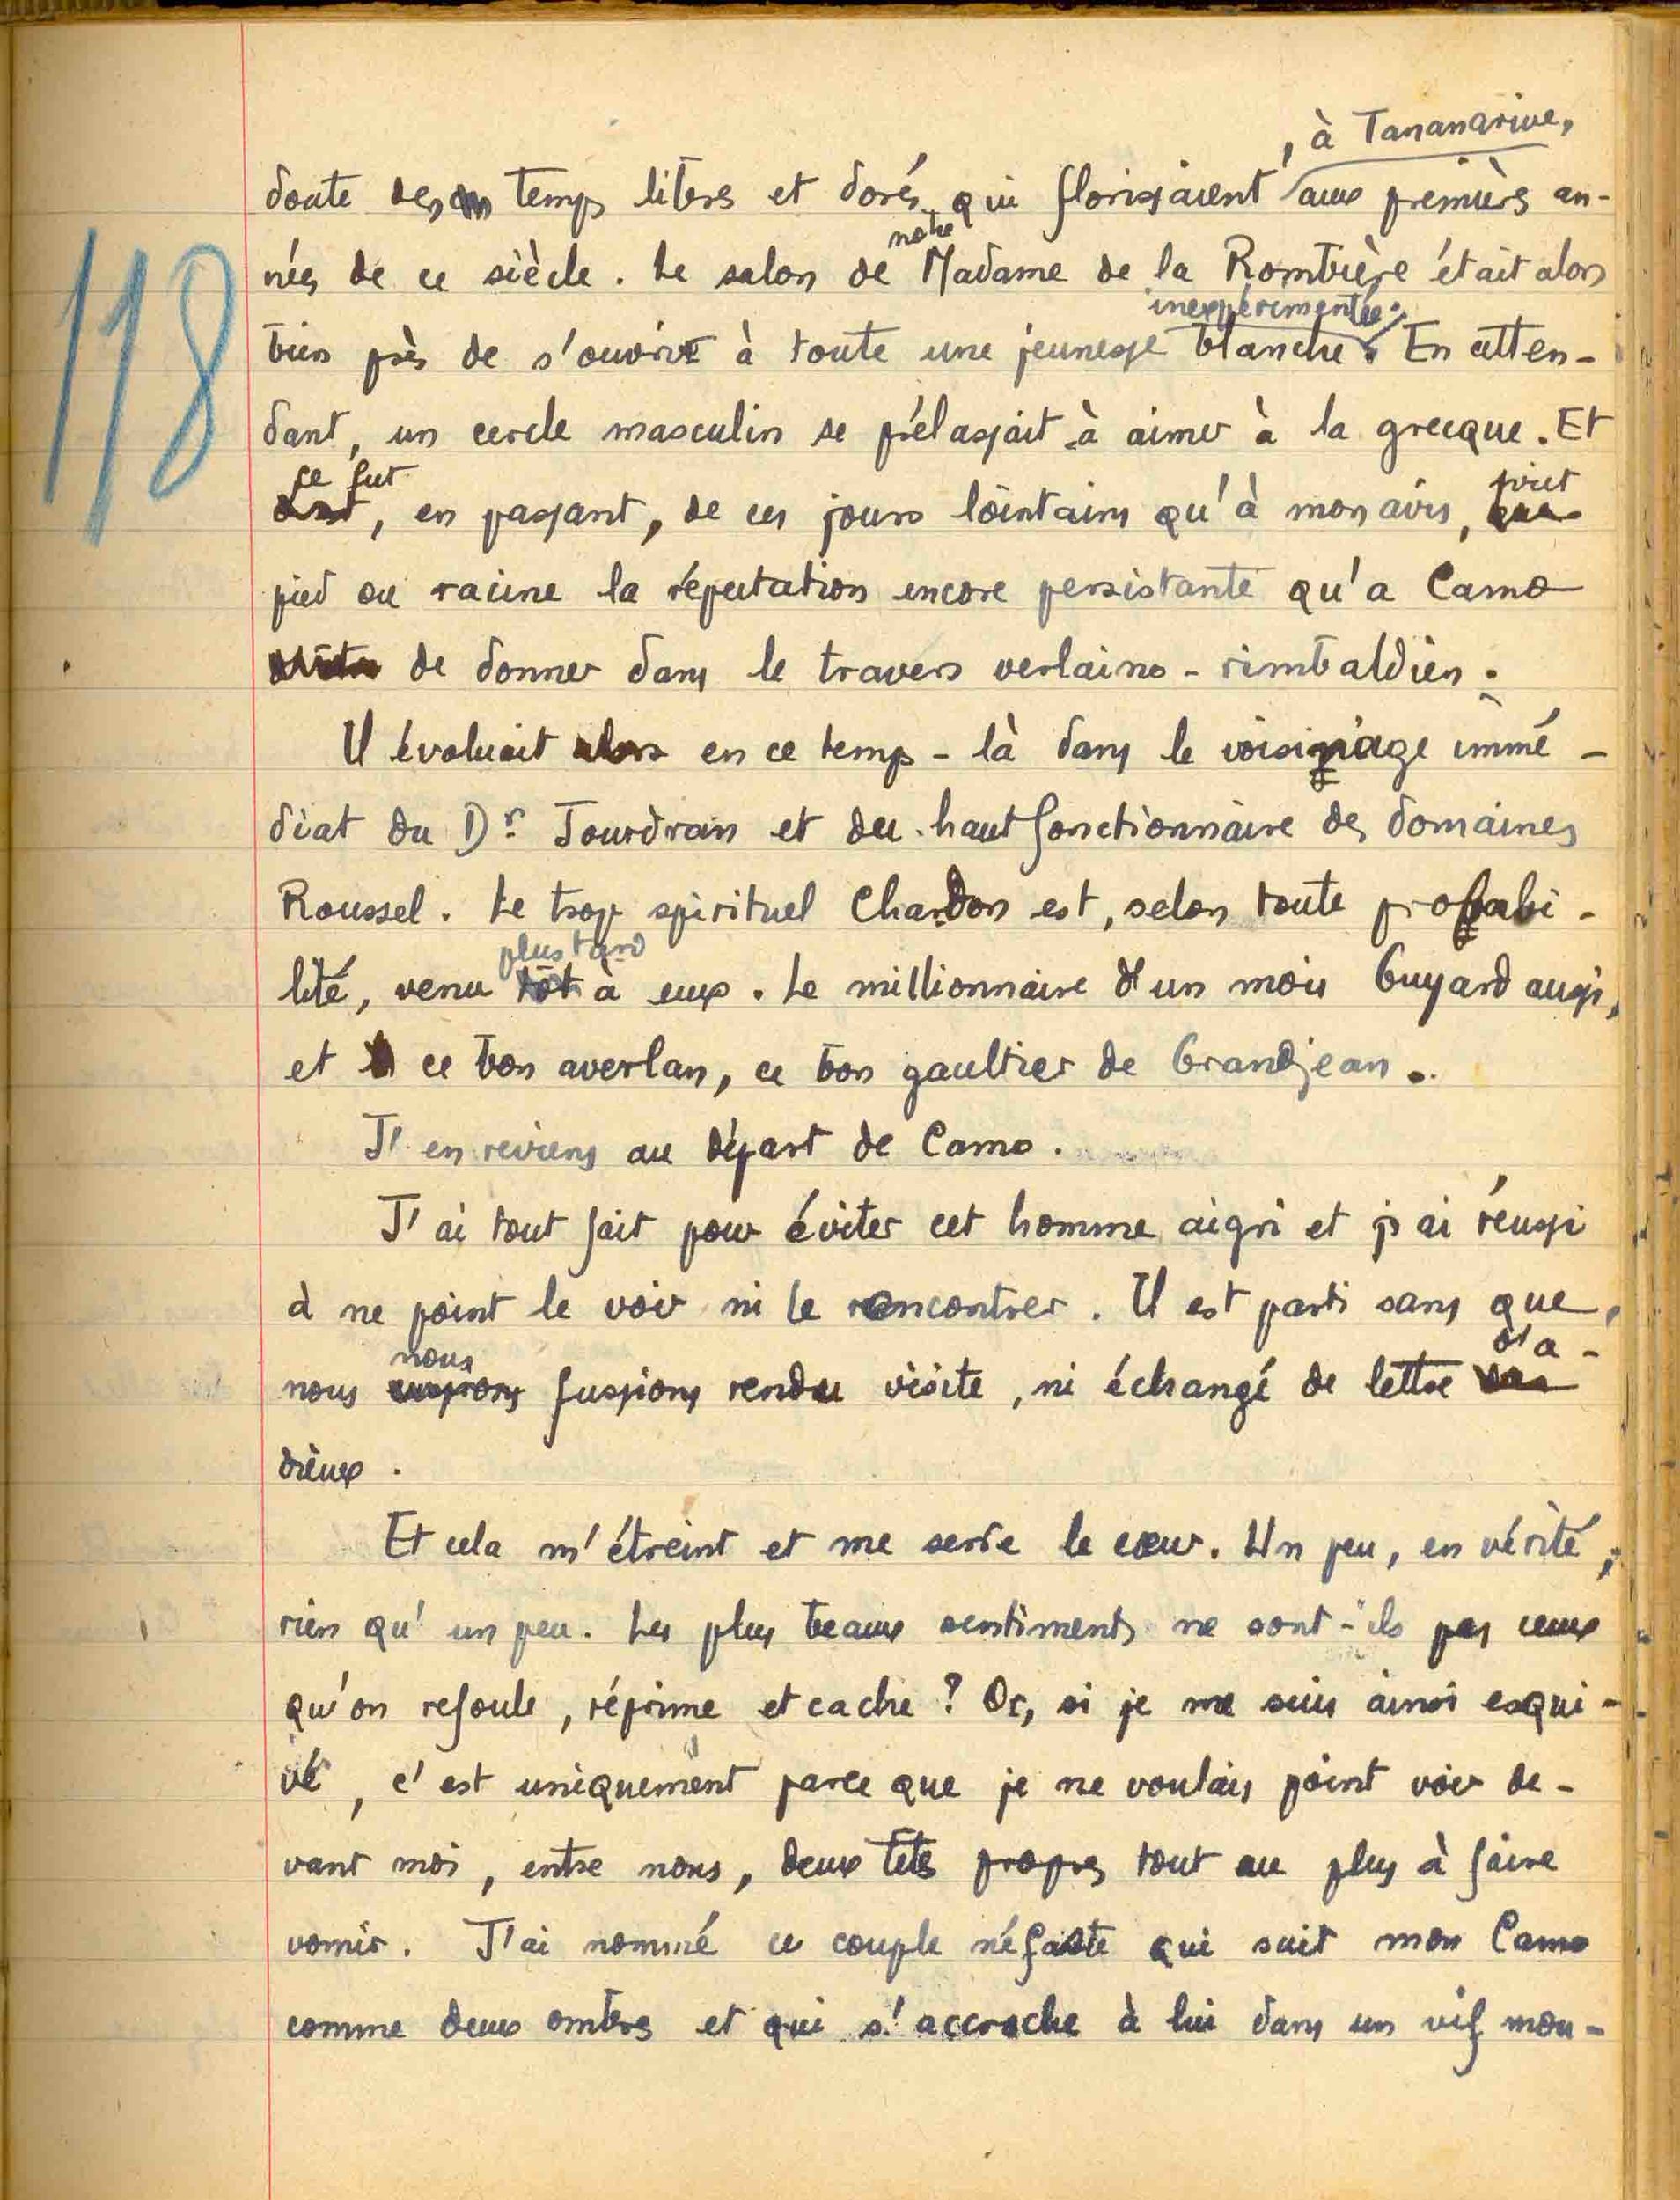 , à Tananarive,
doute des temps libres et dorés qui florissaient aux premières an-
notre
nées de ce siècle. Le salon de Madame de la Rombière était alors
inexpérimentée.
bien près de s'ouvrir à toute une jeunesse blanche. En atten-
dant, un cercle masculin se prélassait à aimer à la grecque. Et
ce fut prit
, en passant, de ces jours lointains qu'à mon avis,
pied ou racine la réputation encore persistante qu'a Camo
de donner dans le travers verlaino-rimbaldien.
Il évoluait alors en ce temps-là dans le voisinage immé-
diat du Dr Jourdran et du haut fonctionnaire des domaines
Roussel. Le trop spirituel Chardon est, selon toute probabi-
plus tard
lité, venu tôt à eux. Le millionnaire d'un mois Guyard aussi,
et ce bon averlan, ce bon gaultier de Grandjean..
J'en reviens au départ de Camo.
J'ai tout fait pour éviter cet homme aigri et j'ai réussi
à ne point le voir ni le rencontrer. Il est parti sans que
nous d'a-
nous eussions fussions rendu visite, ni échangé de lettre
dieux.
Et cela m'étreint et me serre le cœur. Un peu, en vérité,
rien qu'un peu. Les plus beaux sentiments ne sont-ils pas ceux
qu'on refoule, réprime et cache ? Or, si je me suis ainsi esqui-
vé, c'est uniquement parce que je ne voulais point voir de-
vant moi, entre nous, deux têtes propres tout au plus à faire
vomir. J'ai nommé ce couple néfaste qui suit mon Camo
comme deux ombres et qui s'accroche à lui dans un vif mou-
118